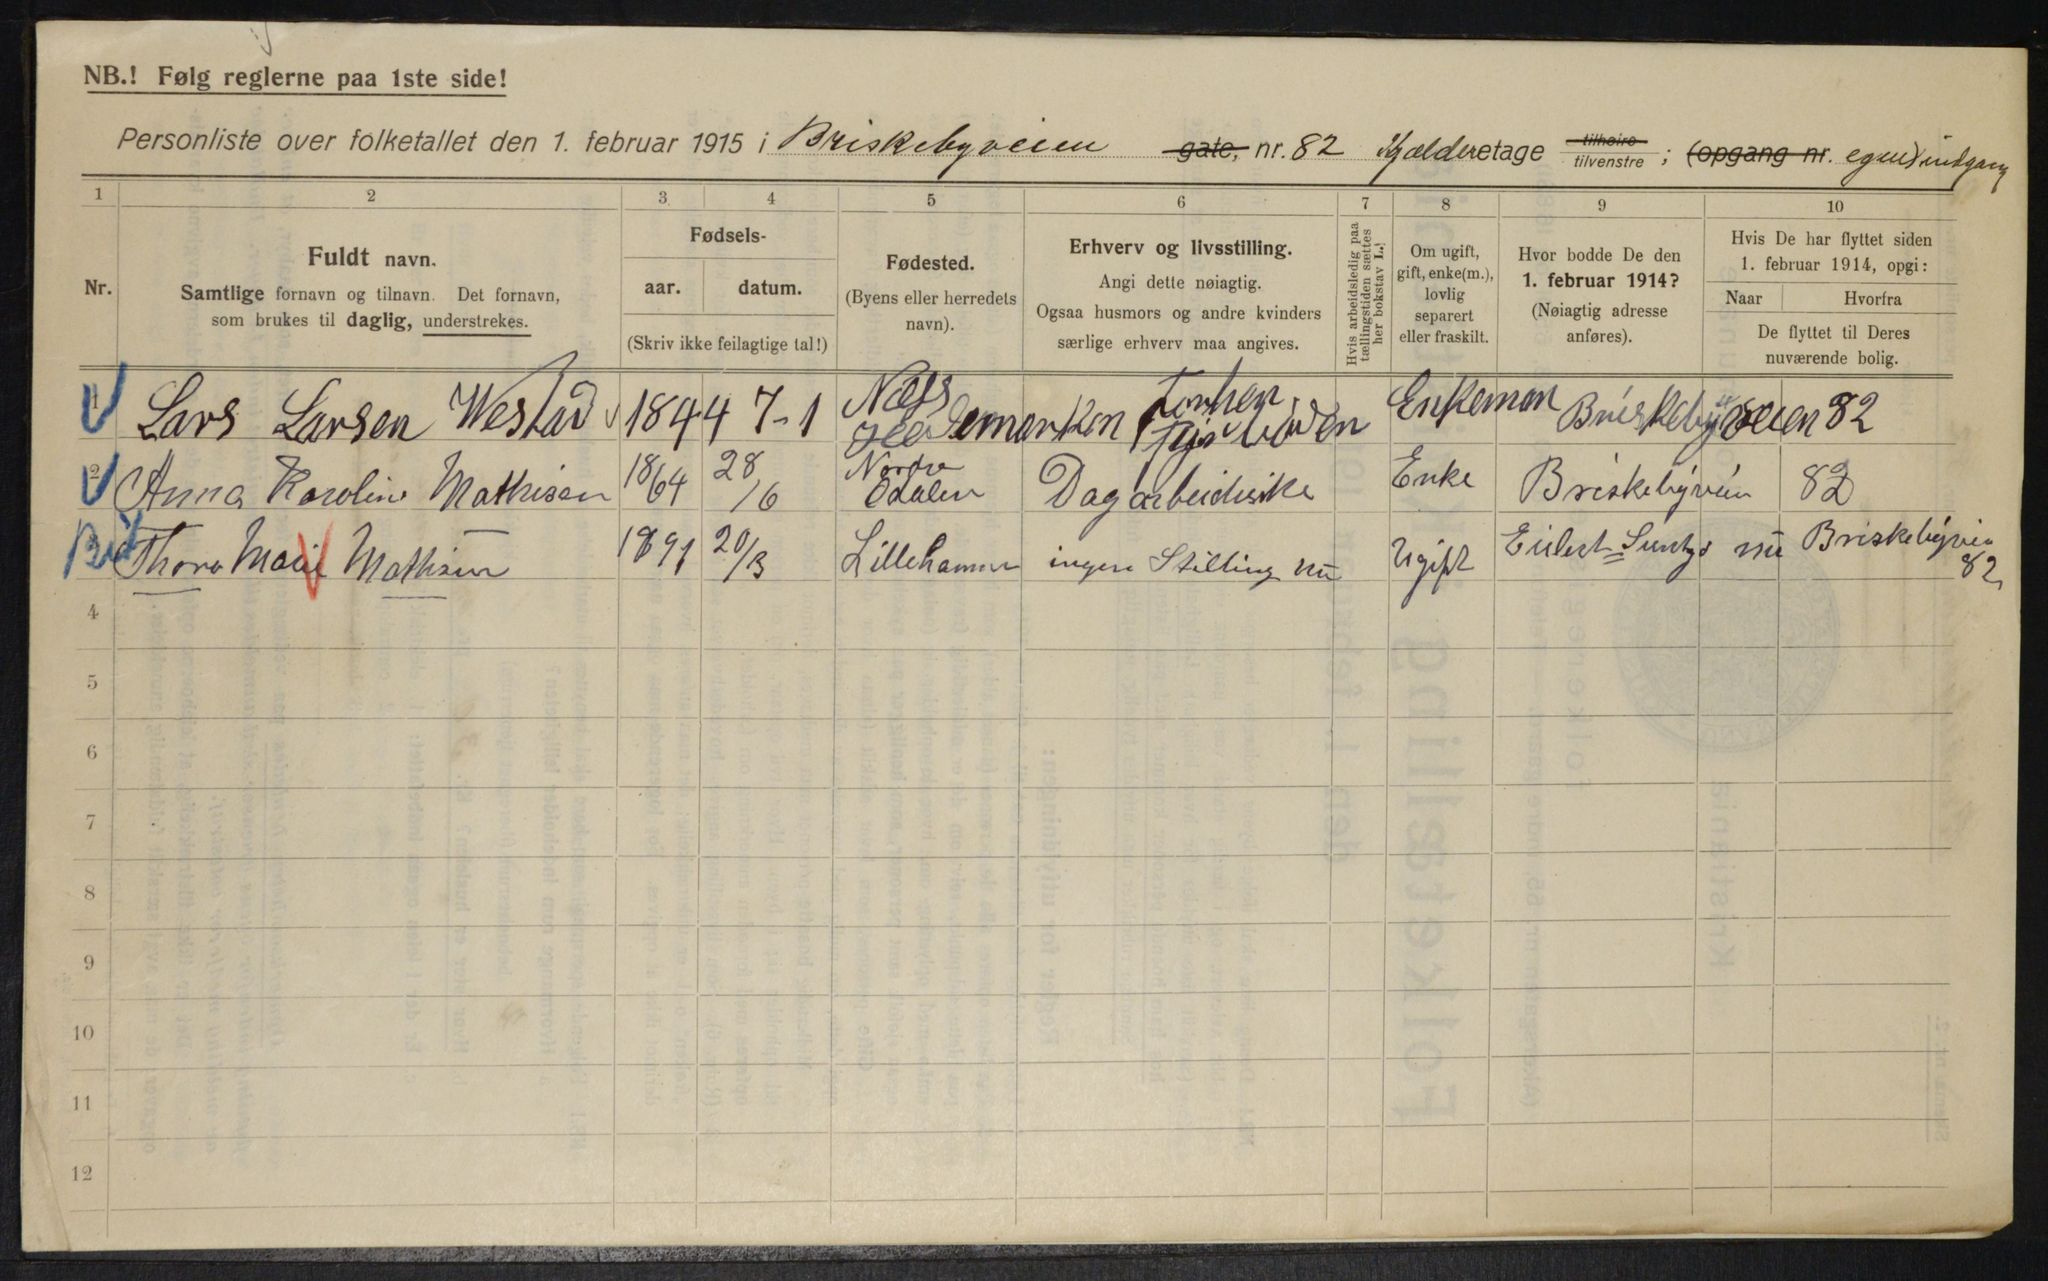 NB.! Følg reglerne paa 1ste side!
Personliste over folketallet den 1. februar 1915 i Briskebyveien gate, nr. 82 Kjælderetage tilhøire tilvenstre ; (opgang nr. egen) indgang
1 2 3 4 5 6 7 8 9 10
Nr.
Fuldt navn.
Samtlige fornavn og tilnavn. Det fornavn,
som brukes til daglig, understrekes.
Fødsels-
aar. datum.
(Skriv ikke feilagtige tal!)
Fødested.
(Byens eller herredets
navn).
Erhverv og livsstilling.
Angi dette nøiagtig.
Ogsaa husmors og andre kvinders
særlige erhverv maa angives.
Hvis arbeidsledig paa
tællingstiden sættes
her bokstav L.!
Om ugift,
gift, enke(m.),
lovlig
separert
eller fraskilt.
Hvor bodde De den
1. februar 1914?
(Nøiagtig adresse
anføres).
Hvis De har flyttet siden
1. februar 1914, opgi:
Naar Hvorfra
De flyttet til Deres
nuværende bolig.
1 Lars Larsen Westad 1844 7-1 Næss Hedemarken Enkeman Briskebyveien 82
2 Anna Karoline Mathisen 1864 28/6 Nordre Odalen Enke Briskebyveien 82
Thora Marie Mathisen 1891 20/3 Lillehammer ingen Stilling nu Ugift Eilert Sundts nu Briskebyvein 82
4
5
6
7
8
9
10
11
12